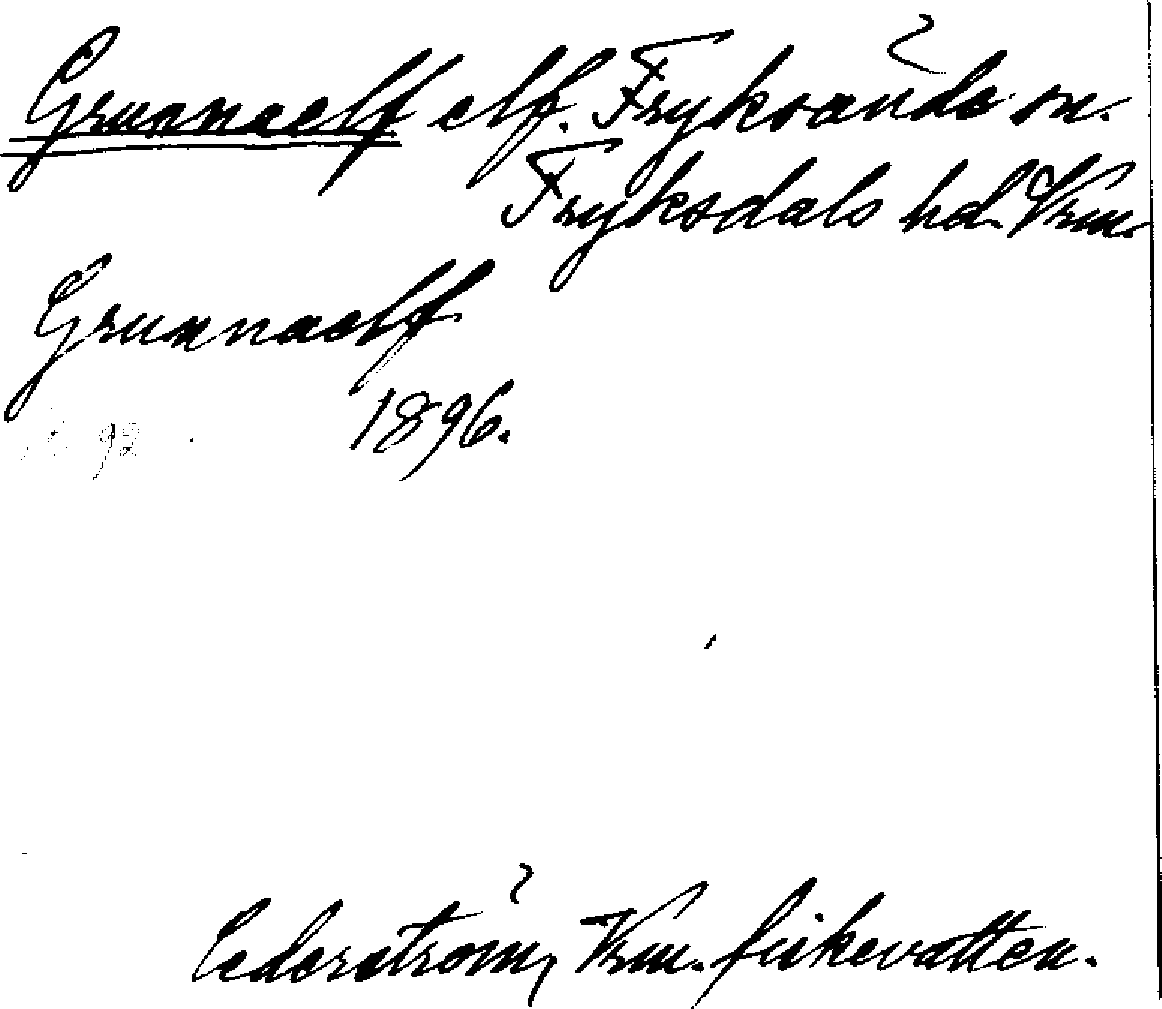 Grunnaelf elf. Fryksände sn.
Fryksdals hd. Vrm.
Grunnaelf
1896.
Cederström, Vrm. fiskevatten.